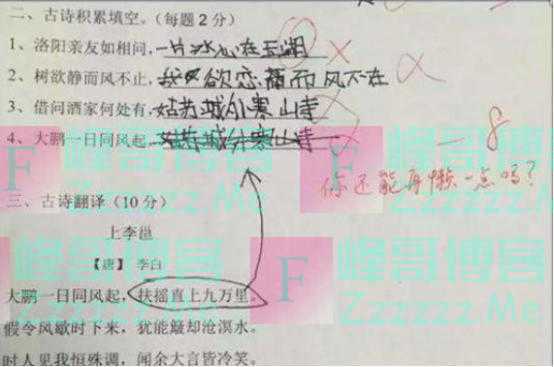 二、古诗积累填空。(每题2分)
1、洛阳亲友如相问,一片冰心在玉湖
2、树欲静而风不止,我又欲恋痛而风不在
3、借问酒家何处有,姑苏城外寒山寺
4、大鹏一日同风起,姑苏城外寒山寺
-8
你还能再懒一点吗?
三、古诗翻译(10分)
上李邕
【唐】 李白
大鹏一日同风起,扶摇直上九万里。
假令风歇时下来,犹能簸却沧溟水。
时人见我恒殊调,闻余大言皆冷笑。
F 峰哥博客
Zzzzzz.Me
F 峰哥博客
Zzzzzz.Me
峰哥博客
Zzzzzz.Me
F 峰哥博客
Zzzzzz.Me